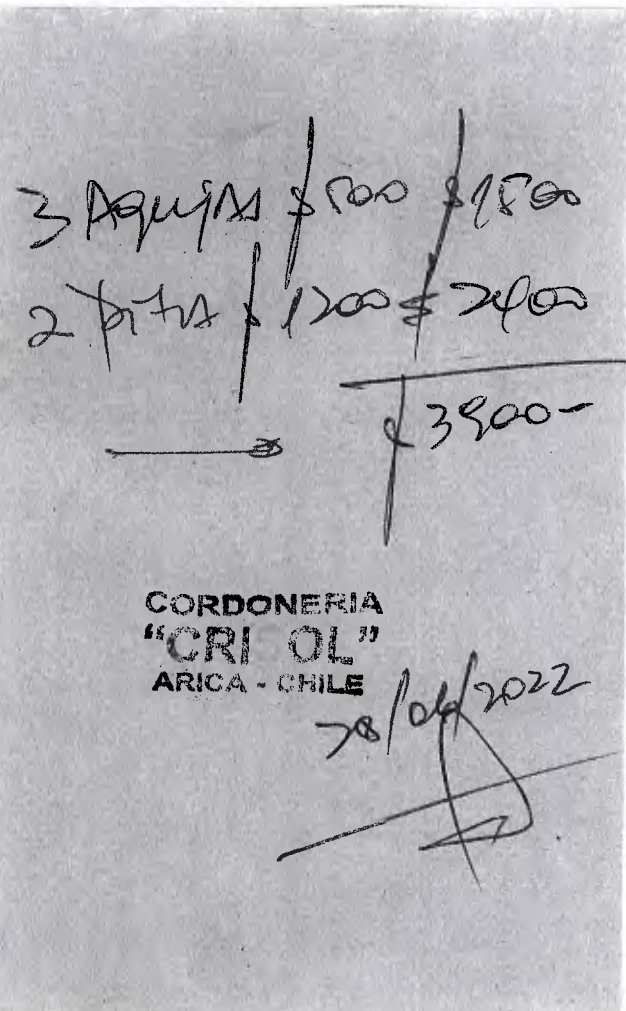 3 Agujas $ 500 $ 1500
2 pitas $ 1200 $ 2400
$ 3900-
CORDONERIA
"CRI OL"
ARICA - CHILE
28/04/2022